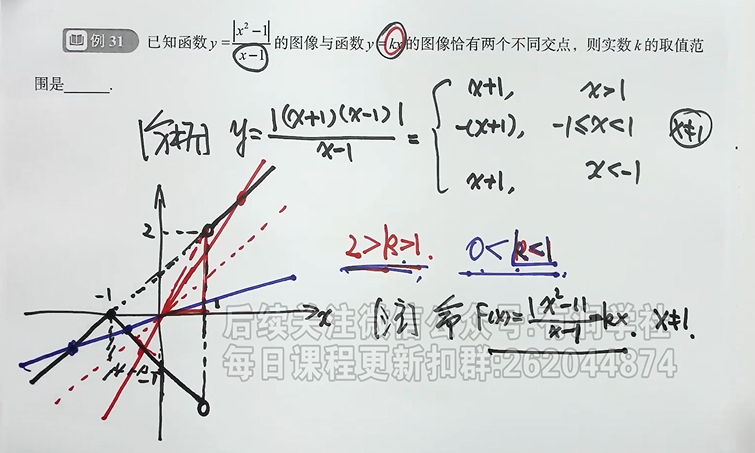 例 31 已知函数 y = |x² - 1| / (x - 1) 的图像与函数 y = kx 的图像恰有两个不同交点，则实数 k 的取值范
围是______.
[分析] y = |(x+1)(x-1)| / (x-1) = { x+1, x>1
-(x+1), -1≤x<1 x≠1
x+1, x<-1
2
2>k>1. 0<k<1
-1 1 x [注] 令 F(x) = |x²-1| / (x-1) - kx. x≠1.
-1
每日课程更新扣群:262044874